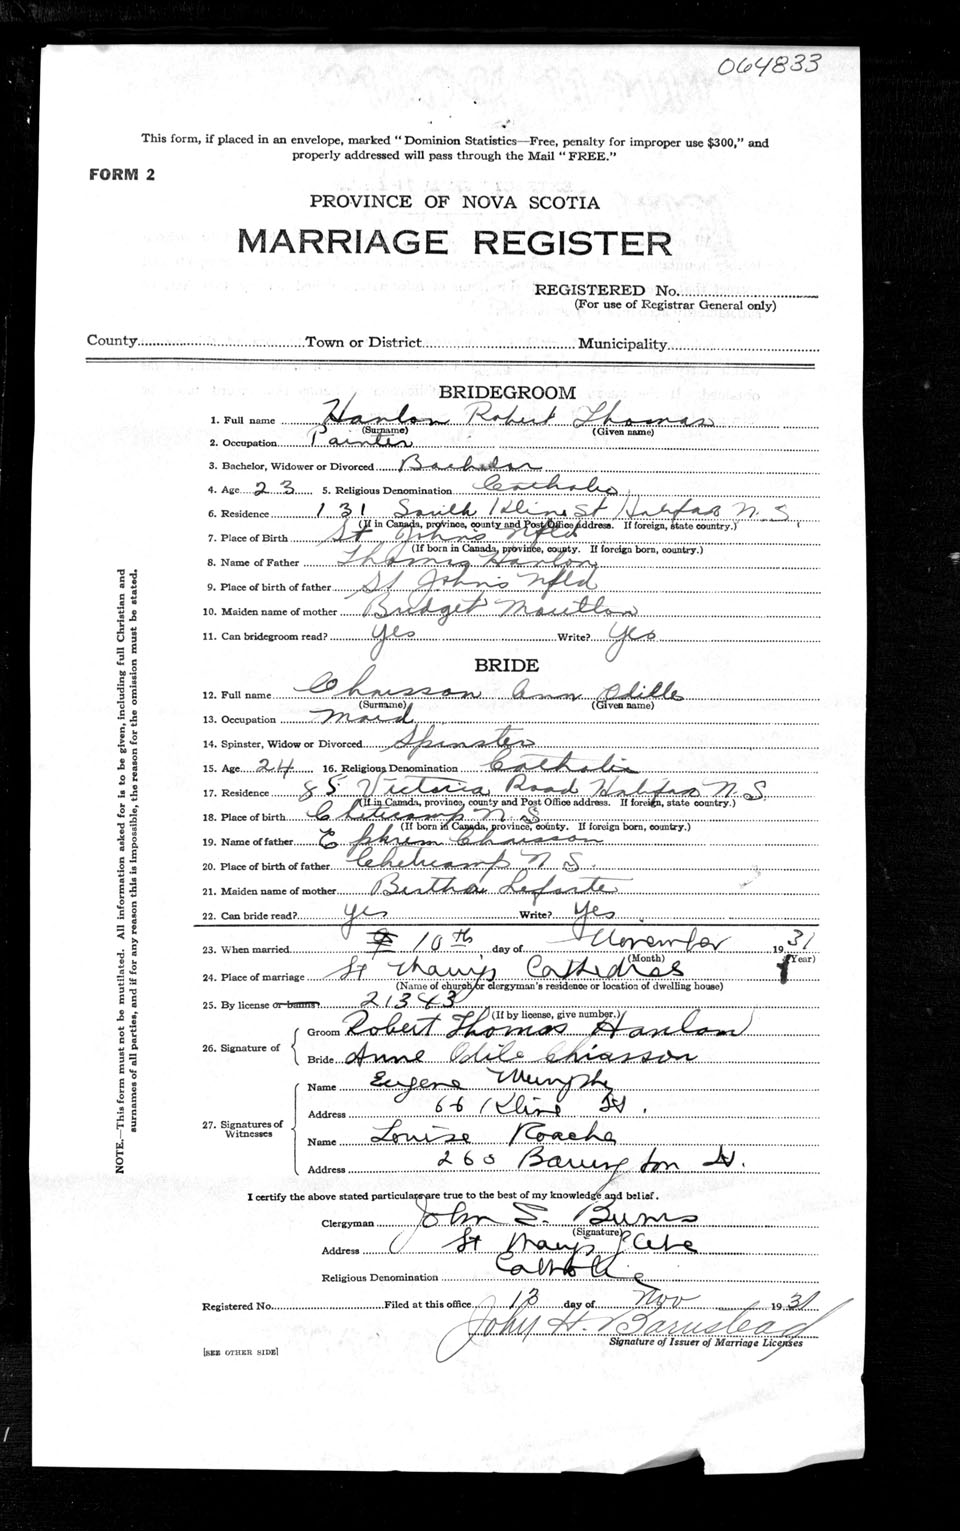 064833
This form, if placed in an envelope, marked "Dominion Statistics—Free, penalty for improper use $300," and
properly addressed will pass through the Mail "FREE."
FORM 2
PROVINCE OF NOVA SCOTIA
MARRIAGE REGISTER
REGISTERED No.
(For use of Registrar General only)
County Town or District Municipality
BRIDEGROOM
1. Full name Hanlon Robert Thomas
(Surname) (Given name)
2. Occupation Painter
3. Bachelor, Widower or Divorced Bachelor
4. Age 23 5. Religious Denomination Catholic
6. Residence 131 South Kline St Halifax N.S
(If in Canada, province, county and Post Office address. If foreign, state country.)
7. Place of Birth St John's Nfld
(If born in Canada, province, county. If foreign born, country.)
8. Name of Father Thomas Hanlon
9. Place of birth of father St John's Nfld
10. Maiden name of mother Bridget
11. Can bridegroom read? yes Write? yes
BRIDE
12. Full name Chiasson Ann Odille
(Surname) (Given name)
13. Occupation Maid
14. Spinster, Widow or Divorced Spinster
15. Age 24 16. Religious Denomination Catholic
17. Residence 85 Victoria Road Halifax N.S.
(If in Canada, province, county and Post Office address. If foreign, state country.)
18. Place of birth Cheticamp N.S
(If born in Canada, province, county. If foreign born, country.)
19. Name of father Ephrem Chiasson
20. Place of birth of father Cheticamp N.S.
21. Maiden name of mother Bertha Leforte
22. Can bride read? yes Write? Yes
23. When married 10th day of November 1931
(Month) (Year)
24. Place of marriage St Mary's Cathedral
(Name of church or clergyman's residence or location of dwelling house)
25. By license or banns 21343
(If by license, give number.)
26. Signature of Groom Robert Thomas Hanlon
Bride Anne Odile Chiasson
27. Signatures of Witnesses Name Eugene Murphy
Address 66 Kline St.
Name Louise Roache
Address 260 Barrington St.
I certify the above stated particulars are true to the best of my knowledge and belief.
Clergyman John S. Burns
(Signature)
Address St Marys
Religious Denomination Catholic
Registered No. Filed at this office 13 day of Nov 1931
John H. Barnstead
Signature of Issuer of Marriage Licenses
[SEE OTHER SIDE]
NOTE.—This form must not be mutilated. All information asked for is to be given, including full Christian and
surnames of all parties, and if for any reason this is impossible, the reason for the omission must be stated.